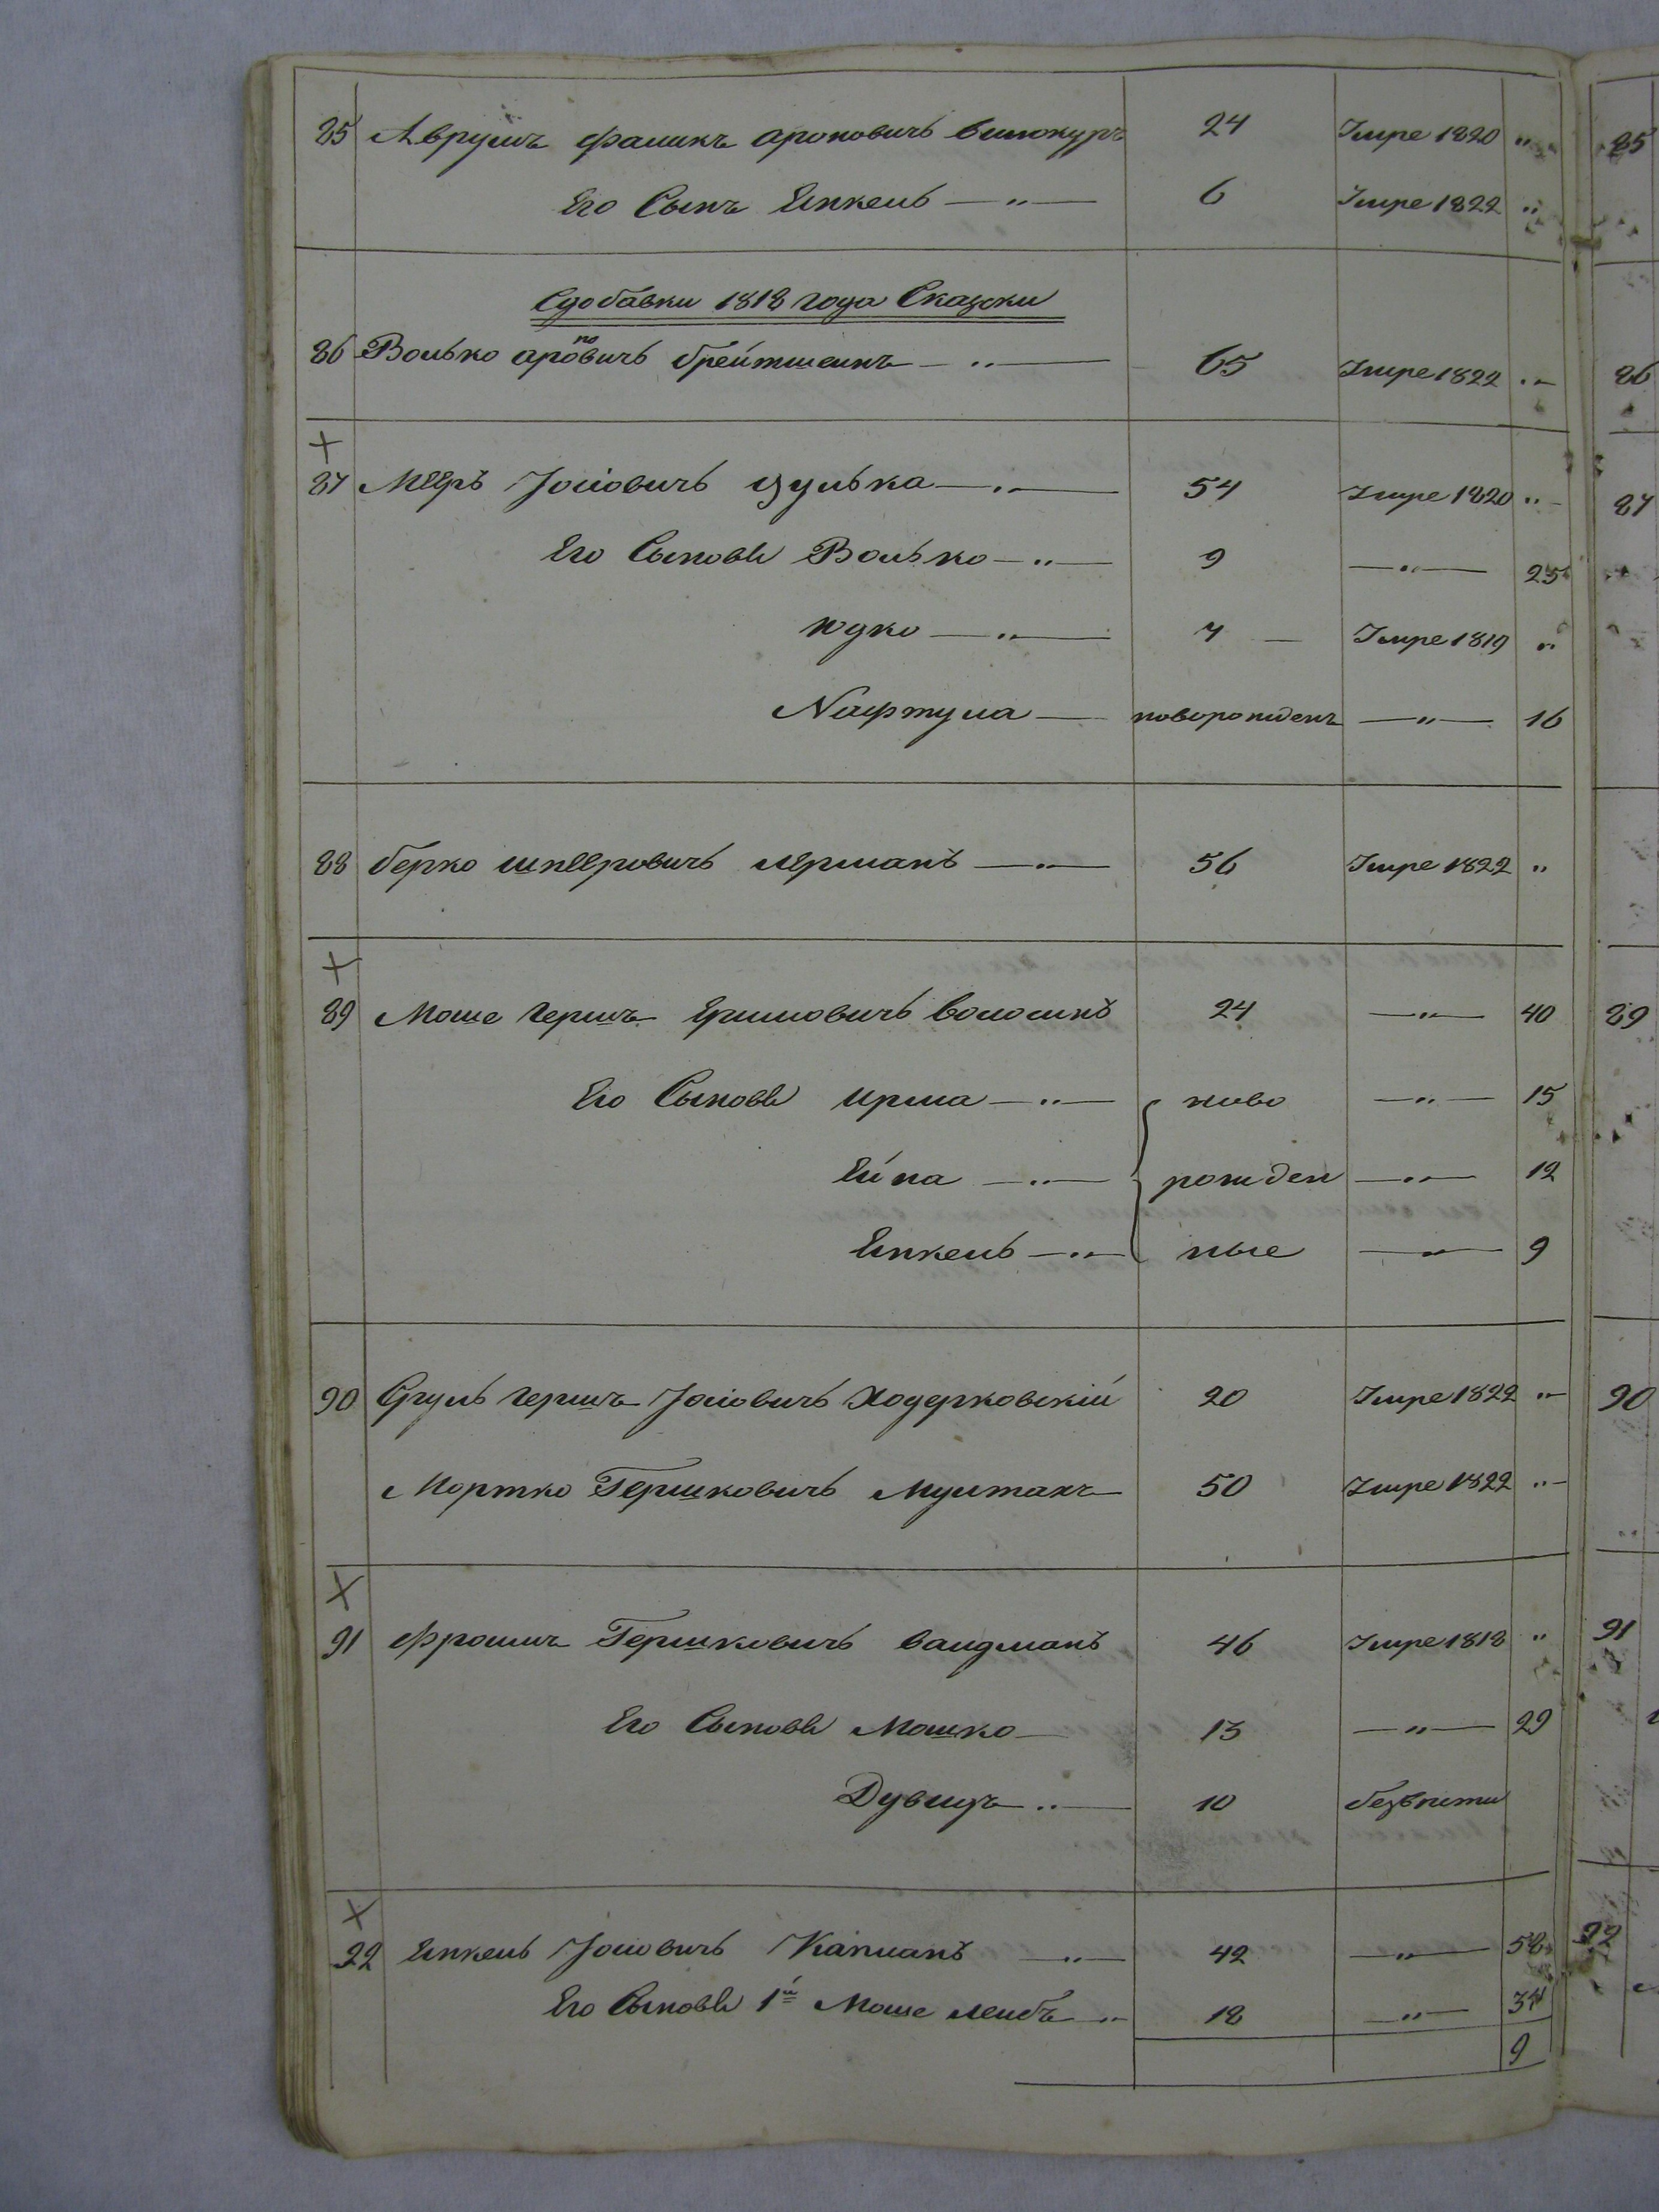 85 Аврумъ Фаликъ Ароновичъ Винокуръ 24 Умре 1820 „
Его Сынъ Еннкель — „ — 6 Умре 1822 „
Сдобавки 1818 года Сказски
86 Волько Ароновичъ Брейтшеинъ — „ — 65 Умре 1822 „
87 Меѣръ Іосіовичъ Цулька — „ — 54 Умре 1820 „
Его Сыновѣ Волько — „ — 9 — „ — 25
Юдко — „ — 7 — Умре 1819 „
Нафтула — новорожденъ — „ — 16
88 Берко Шпеѣровичъ Лерманъ — „ — 56 Умре 1822 „
89 Моше Гершъ Ерышовичъ Волосинъ 24 — „ — 40
Его Сыновѣ Ирма — „ — ново — „ — 15
Ейна — „ — рожден — „ — 12
Еннкель — „ — ные — „ — 9
90 Сруль Гершъ Іосіовичъ Ходорковскій 20 Умре 1822 „
Мортко Гершковичъ Мултанъ 50 Умре 1822 „
91 Фроимъ Гершковичъ Ваидманъ 46 Умре 1818 „
Его Сыновѣ Мошко — 13 — „ — 29
Дувидъ „ — 10 безвѣсти
92 Еннкель Іосіовичъ Капланъ — „ — 42 — „ — 58
Его Сыновѣ 1й Моше Леибъ „ 18 — „ — 34
9
85
86
87
89
90
91
92